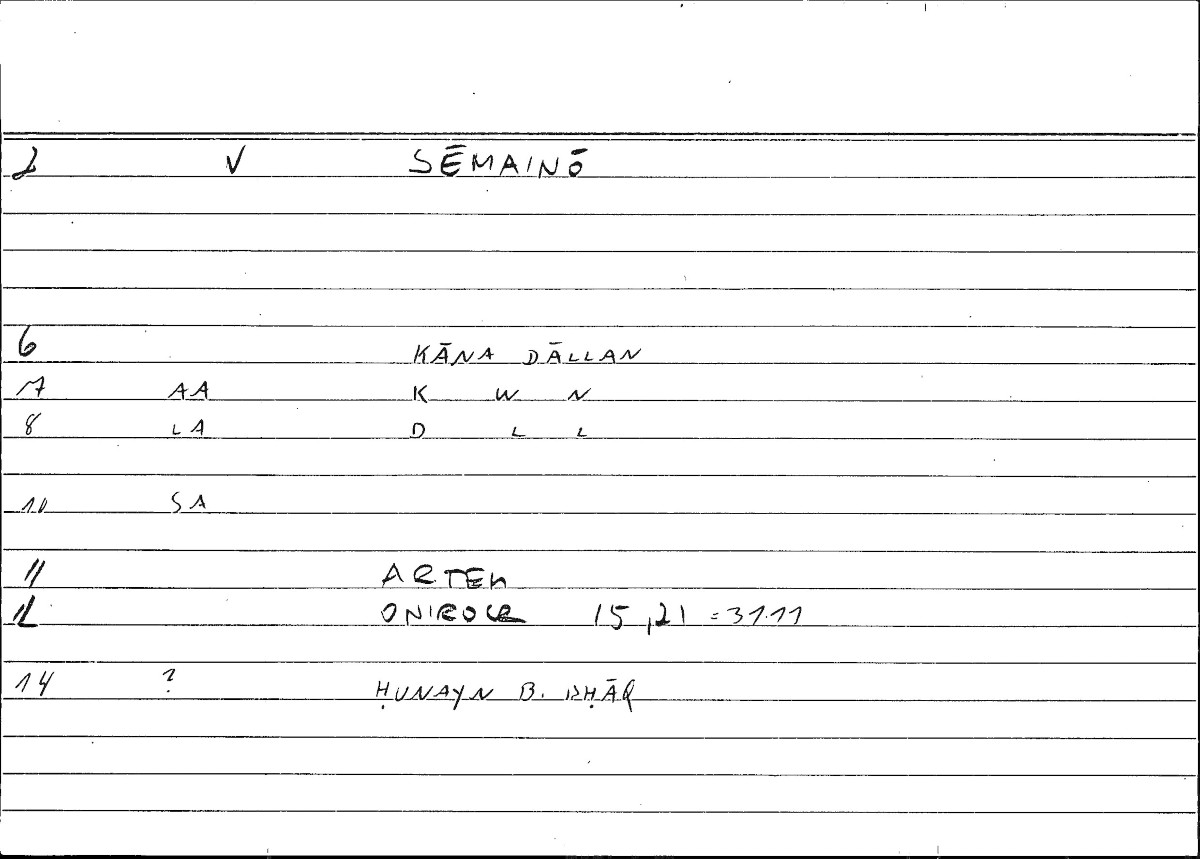 2 V SĒMAINŌ
6 KĀNA DĀLLAN
7 AA K W N
8 LA D L L
10 SA
11 ARTEM
12 ONIROCR 15,21 =31.11
14 ? ḤUNAYN B. ISḤĀQ